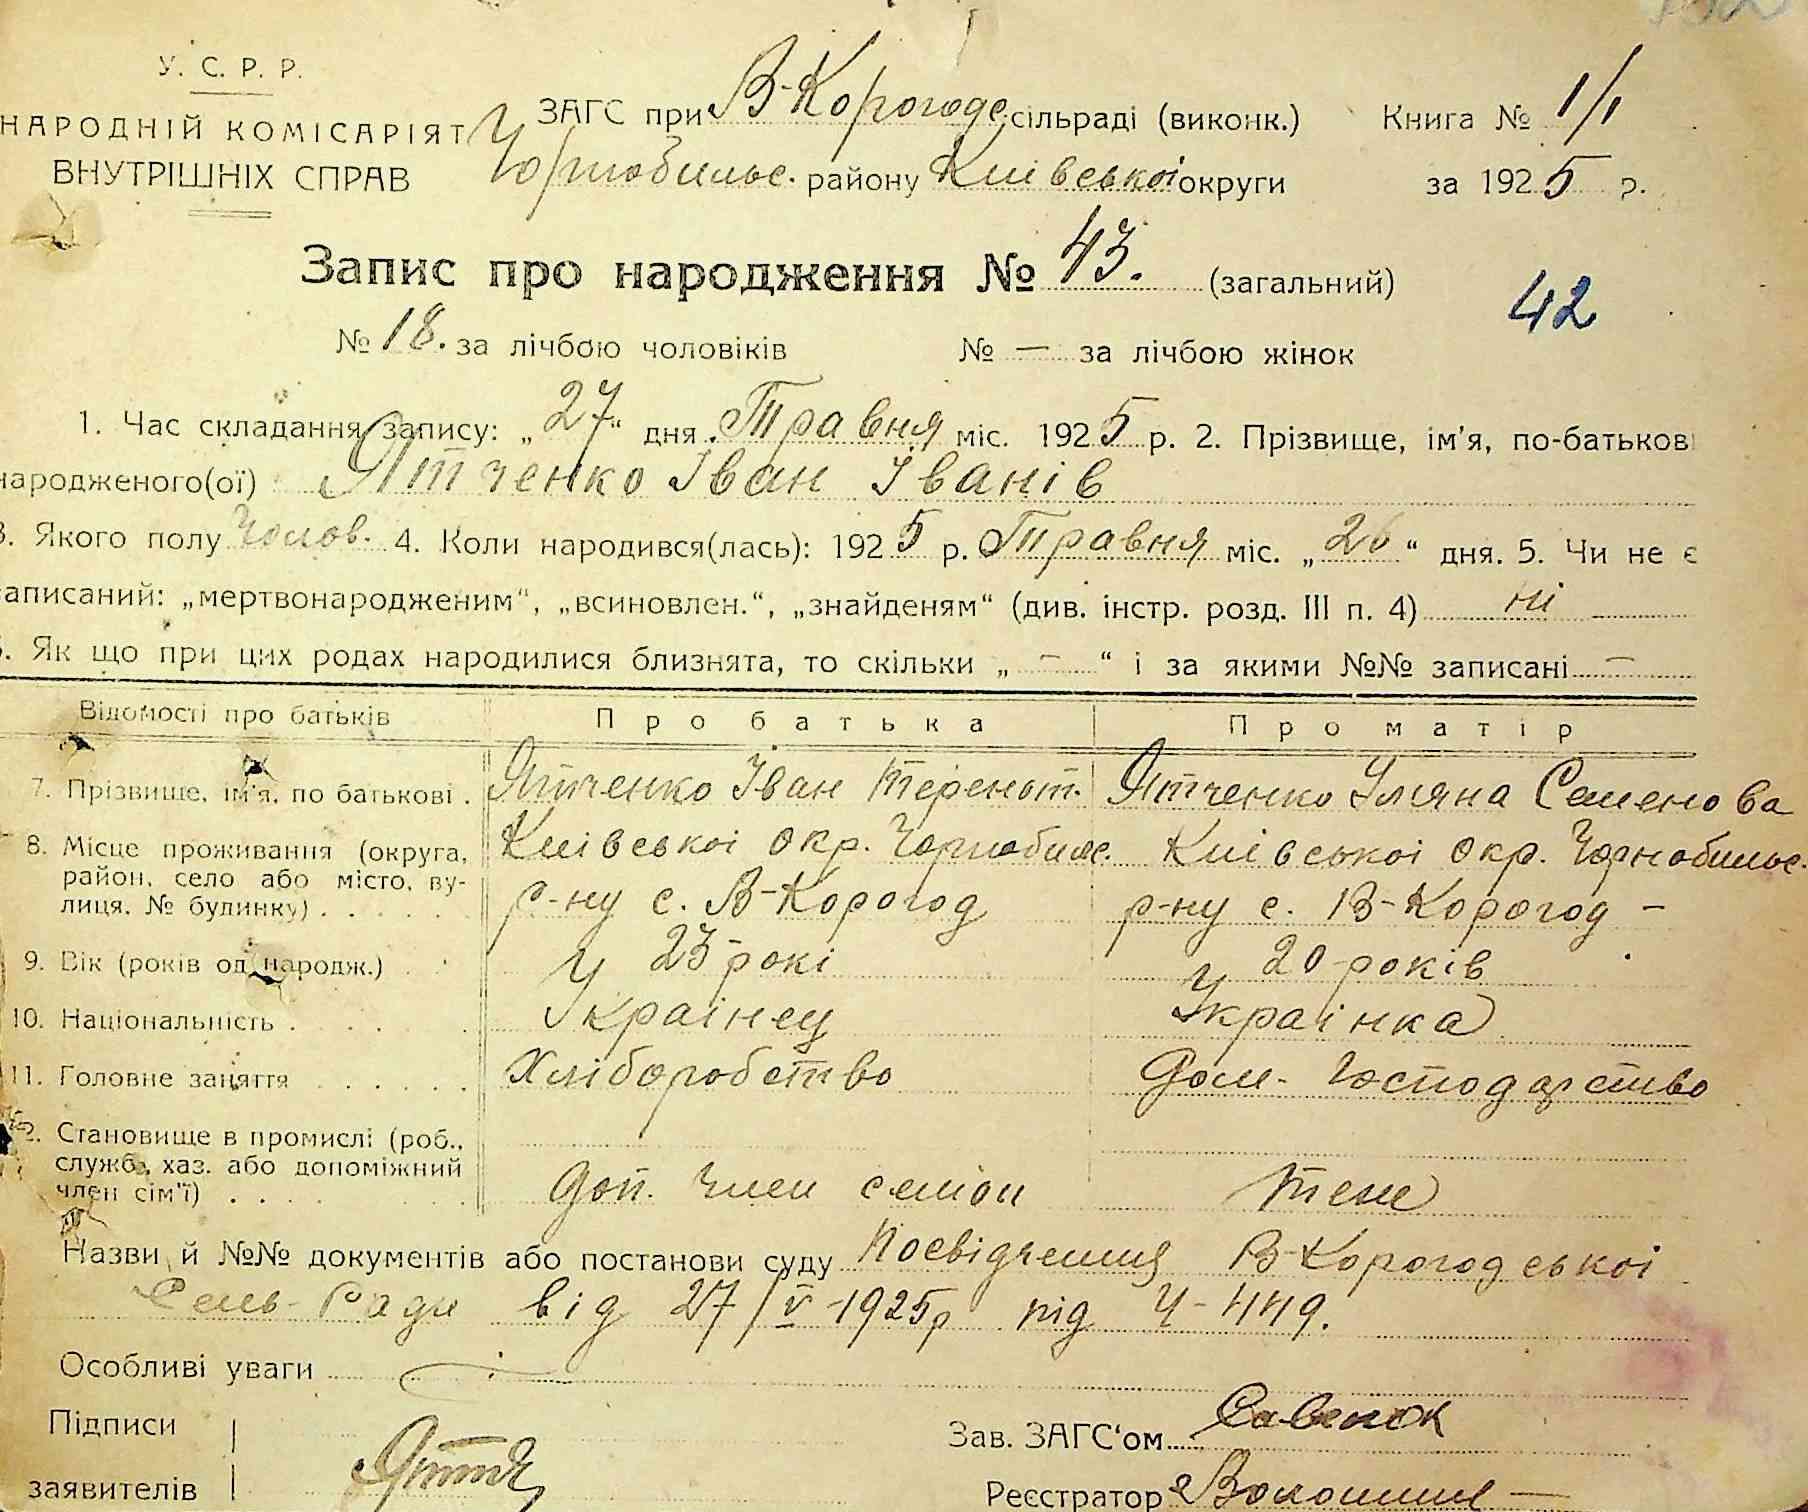 У. С. Р. Р.
НАРОДНІЙ КОМІСАРІЯТ
ВНУТРІШНІХ СПРАВ
ЗАГС при В-Корогодс. сільраді (виконк.)
Чорнобильс. району Київської округи
Книга № 1/1
за 1925 р.
Запис про народження № 43. (загальний)
42
№ 18. за лічбою чоловіків № — за лічбою жінок
1. Час складання запису: „27“ дня Травня міс. 1925 р. 2. Прізвище, ім'я, по-батькові
народженого(ої) Ятченко Іван Іванів
3. Якого полу Чолов. 4. Коли народився(лась): 1925 р. Травня міс. „26“ дня. 5. Чи не є
записаний: „мертвонародженим“, „всиновлен.“, „знайденям“ (див. інстр. розд. III п. 4) ні
6. Як що при цих родах народилися близнята, то скільки „ — “ і за якими №№ записані —
Відомості про батьків Про батька Про матір
7. Прізвище, ім'я, по батькові . Ятченко Іван Терент. Ятченко Уляна Семенова
8. Місце проживання (округа, район, село або місто, вулиця, № будинку) . Київської окр. Чорнобильс. р-ну с. В-Корогод Київської окр. Чорнобильс. р-ну с. В-Корогод —
9. Вік (років од народж.) 23 рокі 20 років
10. Національність . Українец Українка
11. Головне заняття Хліборобство Дом. Господарство
12. Становище в промислі (роб., служб., хаз. або допоміжний член сім'ї) . Доп. член семіи теж
Назви й №№ документів або постанови суду Посвідчення В-Корогодської
Сель-Ради від 27/V-1925р під Ч-449.
Особливі уваги
Підписи
заявителів
Зав. ЗАГС'ом Савенок
Реєстратор